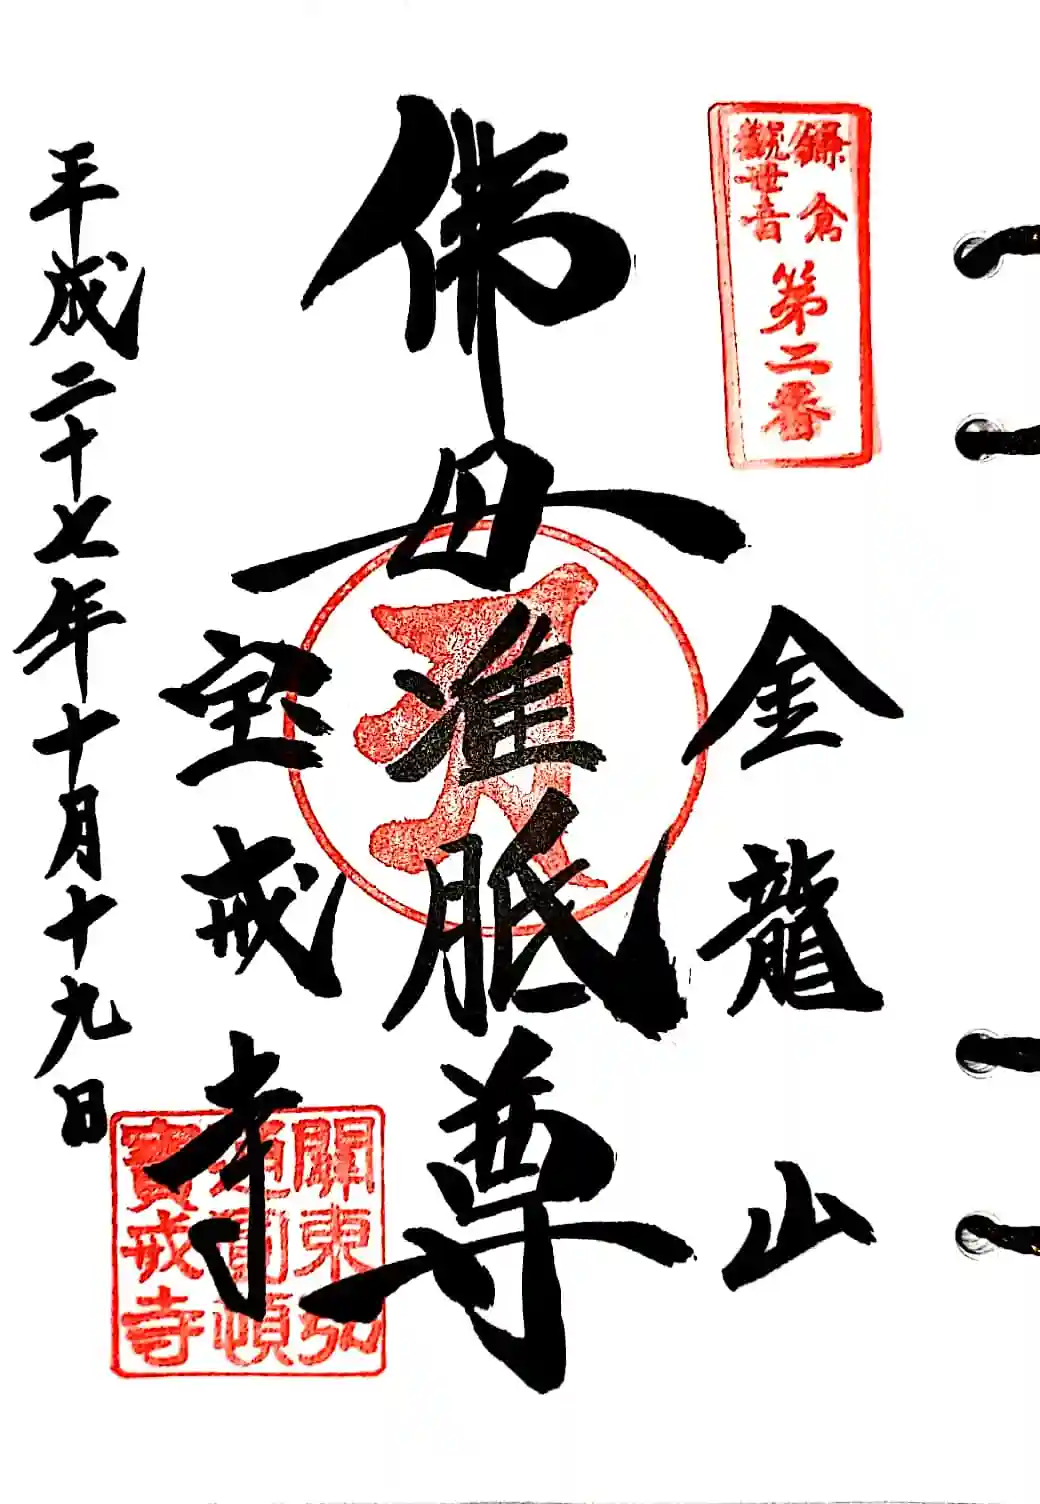 鎌倉
觀世音
第二番
金龍山
佛母准胝尊
宝戒寺
平成二十七年十月十九日
關東弘
通圓頓
寳戒寺